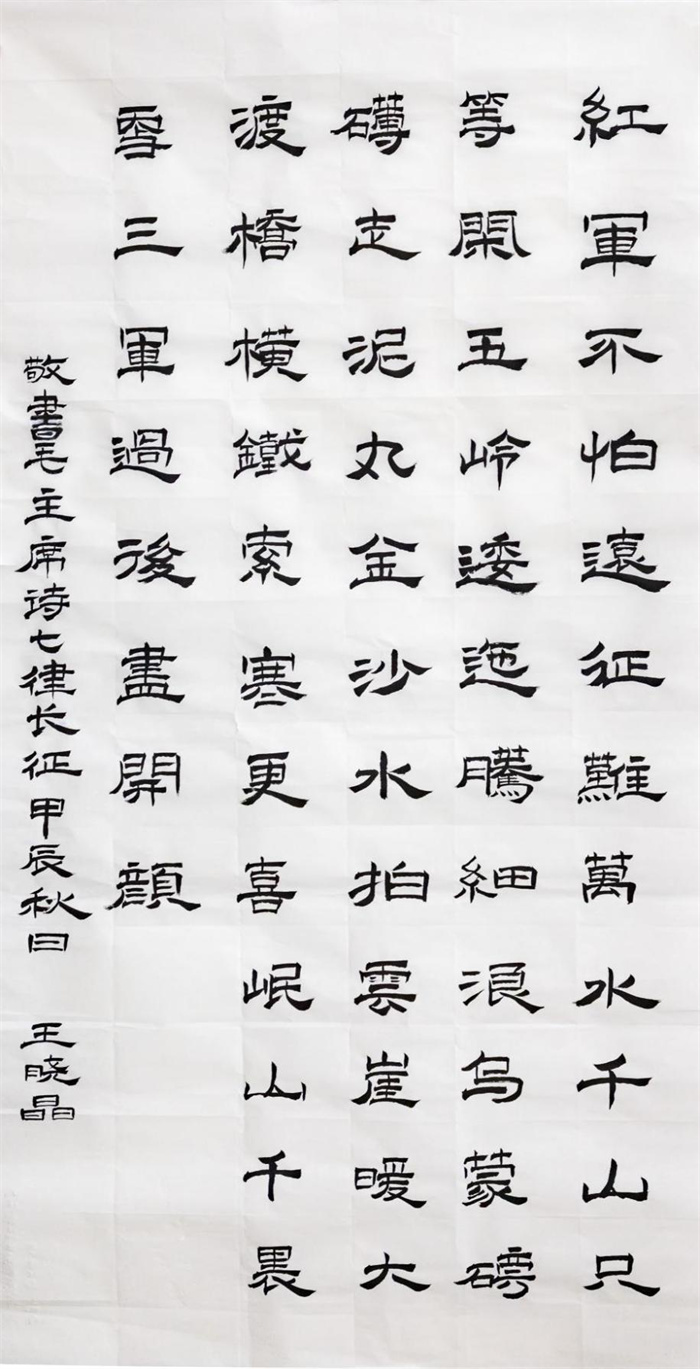 紅軍不怕遠征難萬水千山只
等閑五岭逶迤騰細浪乌蒙磅
礴走泥丸金沙水拍雲崖暖大
渡橋横鐵索寒更喜岷山千裏
雪三軍過後盡開顔
敬書毛主席诗七律长征甲辰秋日 王晓晶